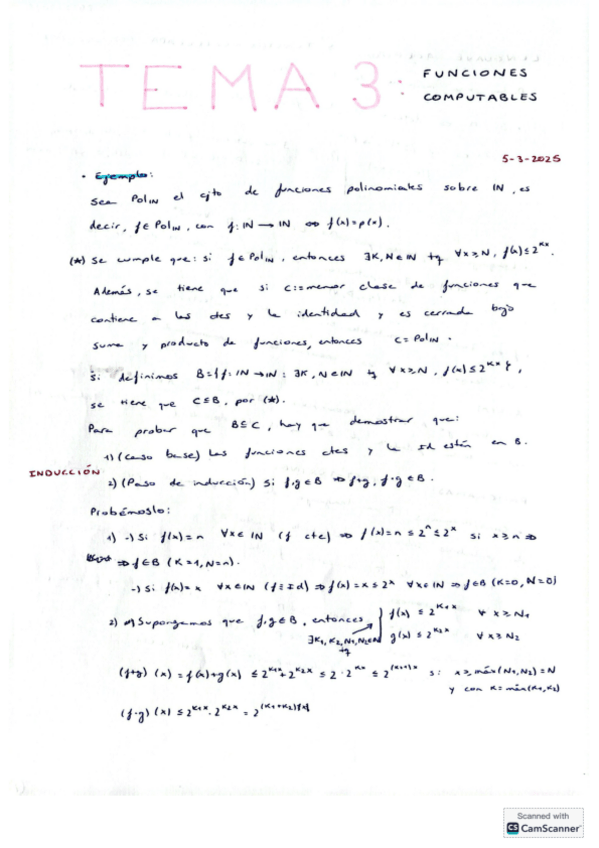 TEMA 3: FUNCIONES
COMPUTABLES
5-3-2025
• Ejemplo:
Sea Pol_IN el cjto de funciones polinomiales sobre IN, es
decir, f∈Pol_IN, con f: IN → IN ⇔ f(x)=p(x).
(*) Se cumple que: si f∈Pol_IN, entonces ∃K,N∈IN tq ∀x≥N, f(x)≤2^{Kx}.
Además, se tiene que si C:=menor clase de funciones que
contiene a las ctes y la identidad y es cerrada bajo
suma y producto de funciones, entonces C=Pol_IN.
Si definimos B={f: IN→IN: ∃K,N∈IN tq ∀x≥N, f(x)≤2^{Kx}},
se tiene que C⊆B, por (*).
Para probar que B⊆C, hay que demostrar que:
1) (Caso base) Las funciones ctes y la Id están en B.
INDUCCIÓN
2) (Paso de inducción) Si f,g∈B ⇒ f+g, f·g∈B.
Probémoslo:
1) -) Si f(x)=n ∀x∈IN (f cte) ⇒ f(x)=n≤2^n≤2^x si x≥n ⇒
⇒ f∈B (K=1, N=n).
-) Si f(x)=x ∀x∈IN (f≡Id) ⇒ f(x)=x≤2^x ∀x∈IN ⇒ f∈B (K=0, N=0)
2) Supongamos que f,g∈B, entonces { f(x)≤2^{K1x} ∀x≥N1
∃K1,K2,N1,N2∈IN g(x)≤2^{K2x} ∀x≥N2
tq
(f+g)(x)=f(x)+g(x)≤2^{K1x}+2^{K2x}≤2·2^{Kx}≤2^{(K+1)x} si x≥máx(N1,N2)=N
y con K=máx(K1,K2)
(f·g)(x)≤2^{K1x}·2^{K2x}=2^{(K1+K2)x}
Scanned with
CS CamScanner